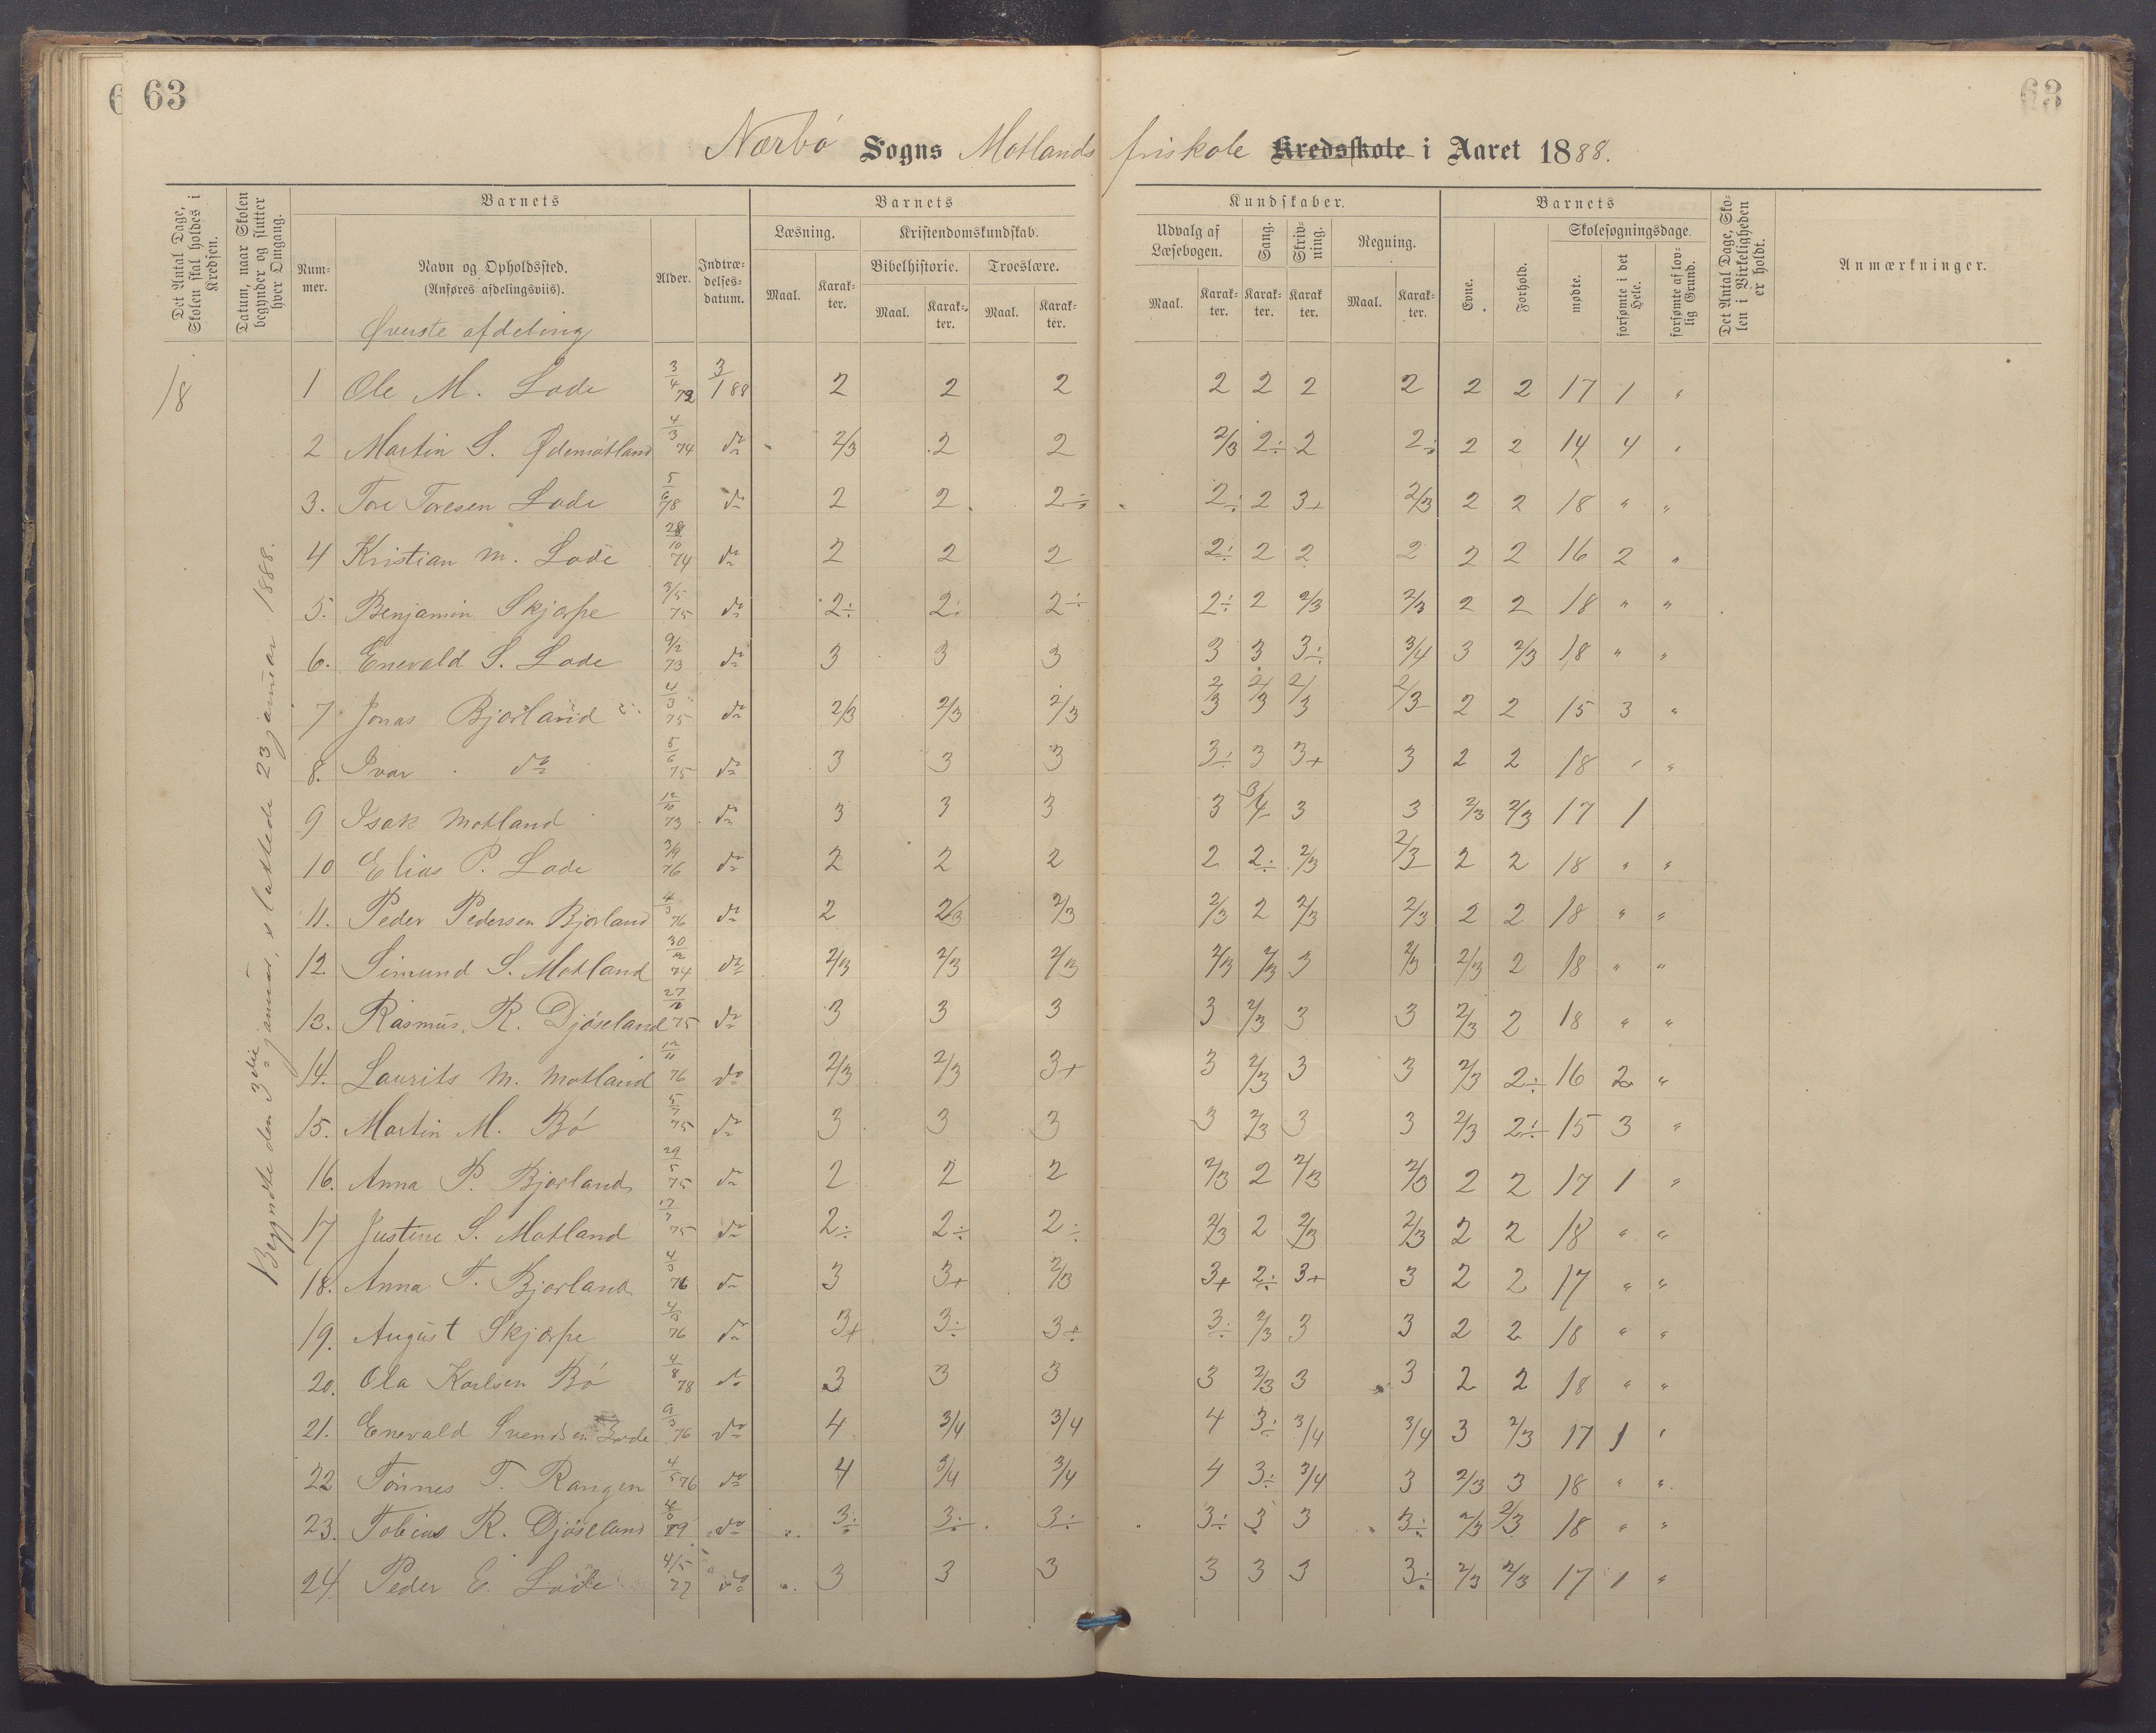 63
63
Nærbø Sogns Motlands friskole Kredsskole i Aaret 1888.
Det Antal Dage, Skolen skal holdes i Kredsen.
Datum, naar Skolen begynder og slutter hver Omgang.
Barnets
Barnets
Kundskaber.
Barnets
Det Antal Dage, Skolen i Virkeligheden er holdt.
Anmærkninger.
Nummer.
Navn og Opholdssted.
(Anføres afdelingsviis).
Alder.
Indtrædelsesdatum.
Læsning.
Kristendomskundskab.
Udvalg af Læsebogen.
Sang.
Skrivning.
Regning.
Evne.
Forhold.
Skolesøgningsdage.
Bibelhistorie. Troeslære.
Maal. Karakter. Maal. Karakter. Maal. Karakter.
Maal. Karakter. Karakter. Karakter. Maal. Karakter.
mødte.
forsømte i det Hele.
forsømte af lovlig Grund.
Øverste afdeling
18
Begyndte den 3die januar, sluttede 23 januar 1888.
1 Ole M. Lode 3/4 72 3/1 88 2 2 2 2 2 2 2 2 2 17 1 "
2 Martin S. Ødemotland 4/3 74 do 2/3 2 2 2/3 2÷ 2 2÷ 2 2 14 4 "
3. Tore Toresen Lode 5/6 78 do 2 2 2÷ 2÷ 2 3+ 2/3 2 2 18 " "
4 Kristian M. Lode 28/10 74 do 2 2 2 2÷ 2 2 2 2 2 16 2 "
5. Benjamin Skjærpe 3/5 75 do 2÷ 2÷ 2÷ 2÷ 2 2/3 2/3 2 2 18 " "
6. Enevald S. Lode 9/2 73 do 3 3 3 3 3 3÷ 3/4 3 2/3 18 " "
7 Jonas Bjorland 4/3 75 do 2/3 2/3 2/3 2/3 2/3 2/3 2/3 2 2 15 3 "
8. Ivar do 5/6 75 do 3 3 3 3÷ 3 3+ 3 2 2 18 " "
9 Isak Motland 12/10 73 do 3 3 3 3 3/4 3 3 2/3 2/3 17 1
10 Elias P. Lode 3/9 76 do 2 2 2 2 2÷ 2/3 2/3 2 2 18 " "
11. Peder Pedersen Bjorland 4/3 76 do 2 2/3 2/3 2/3 2 2/3 2/3 2 2 18 " "
12. Simund S. Motland 30/12 74 do 2/3 2/3 2/3 2/3 2/3 3 2/3 2/3 2 18 " "
13. Rasmus R. Djøseland 27/10 75 do 3 3 3 3 2/3 3 3 2/3 2 18 " "
14. Laurits M. Motland 12/11 76 do 2/3 2/3 3+ 3 2/3 3 3 2/3 2÷ 16 2 "
15. Martin M. Bø 5/7 75 do 3 3 3 3 2/3 3 3 2/3 2÷ 15 3 "
16. Anna P. Bjorland 29/5 75 do 2 2 2 2/3 2 2/3 2/3 2 2 17 1 "
17 Justine S. Motland 17/7 75 do 2÷ 2÷ 2÷ 2/3 2 2/3 2/3 2 2 18 " "
18. Anna T. Bjorland 76 do 3 3+ 2/3 3+ 2÷ 3+ 3 2 2 17 " "
19. August Skjærpe 76 do 3+ 3÷ 3+ 3÷ 2/3 3 3 2 2 18 " "
20. Ola Karlsen Bø 4/8 78 do 3 3 3 3 2/3 3 3 2 2 18 " "
21. Enevald Svendsen Lode 9/3 76 do 4 3/4 3/4 4 3÷ 3/4 3/4 3 2/3 17 1 "
22 Tønnes T. Rangen 4/5 76 do 4 3/4 3/4 4 3÷ 3/4 3 2/3 3 18 " "
23. Tobias R. Djøseland do 3÷ 3÷ 3÷ 3÷ 3 3 3÷ 2/3 2/3 18 " "
24. Peder E. Lode 4/5 77 do 3 3 3 3 3 3 3÷ 2/3 2/3 17 1 "